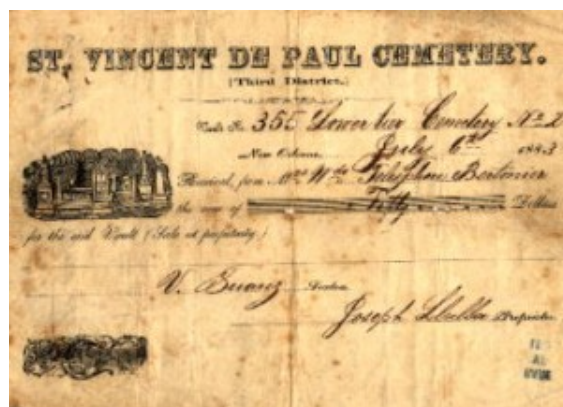 ST. VINCENT DE PAUL CEMETERY.
(Third District.)
Vault No. 355 Lower tier Cemetery No 2
New Orleans, July 6th 1883
Received, from Mrs Wdw Bertonier
the sum of Fifty Dollars
for the said Vault (Sale at perpetuity.)
V. Sexton.
Joseph Proprietor